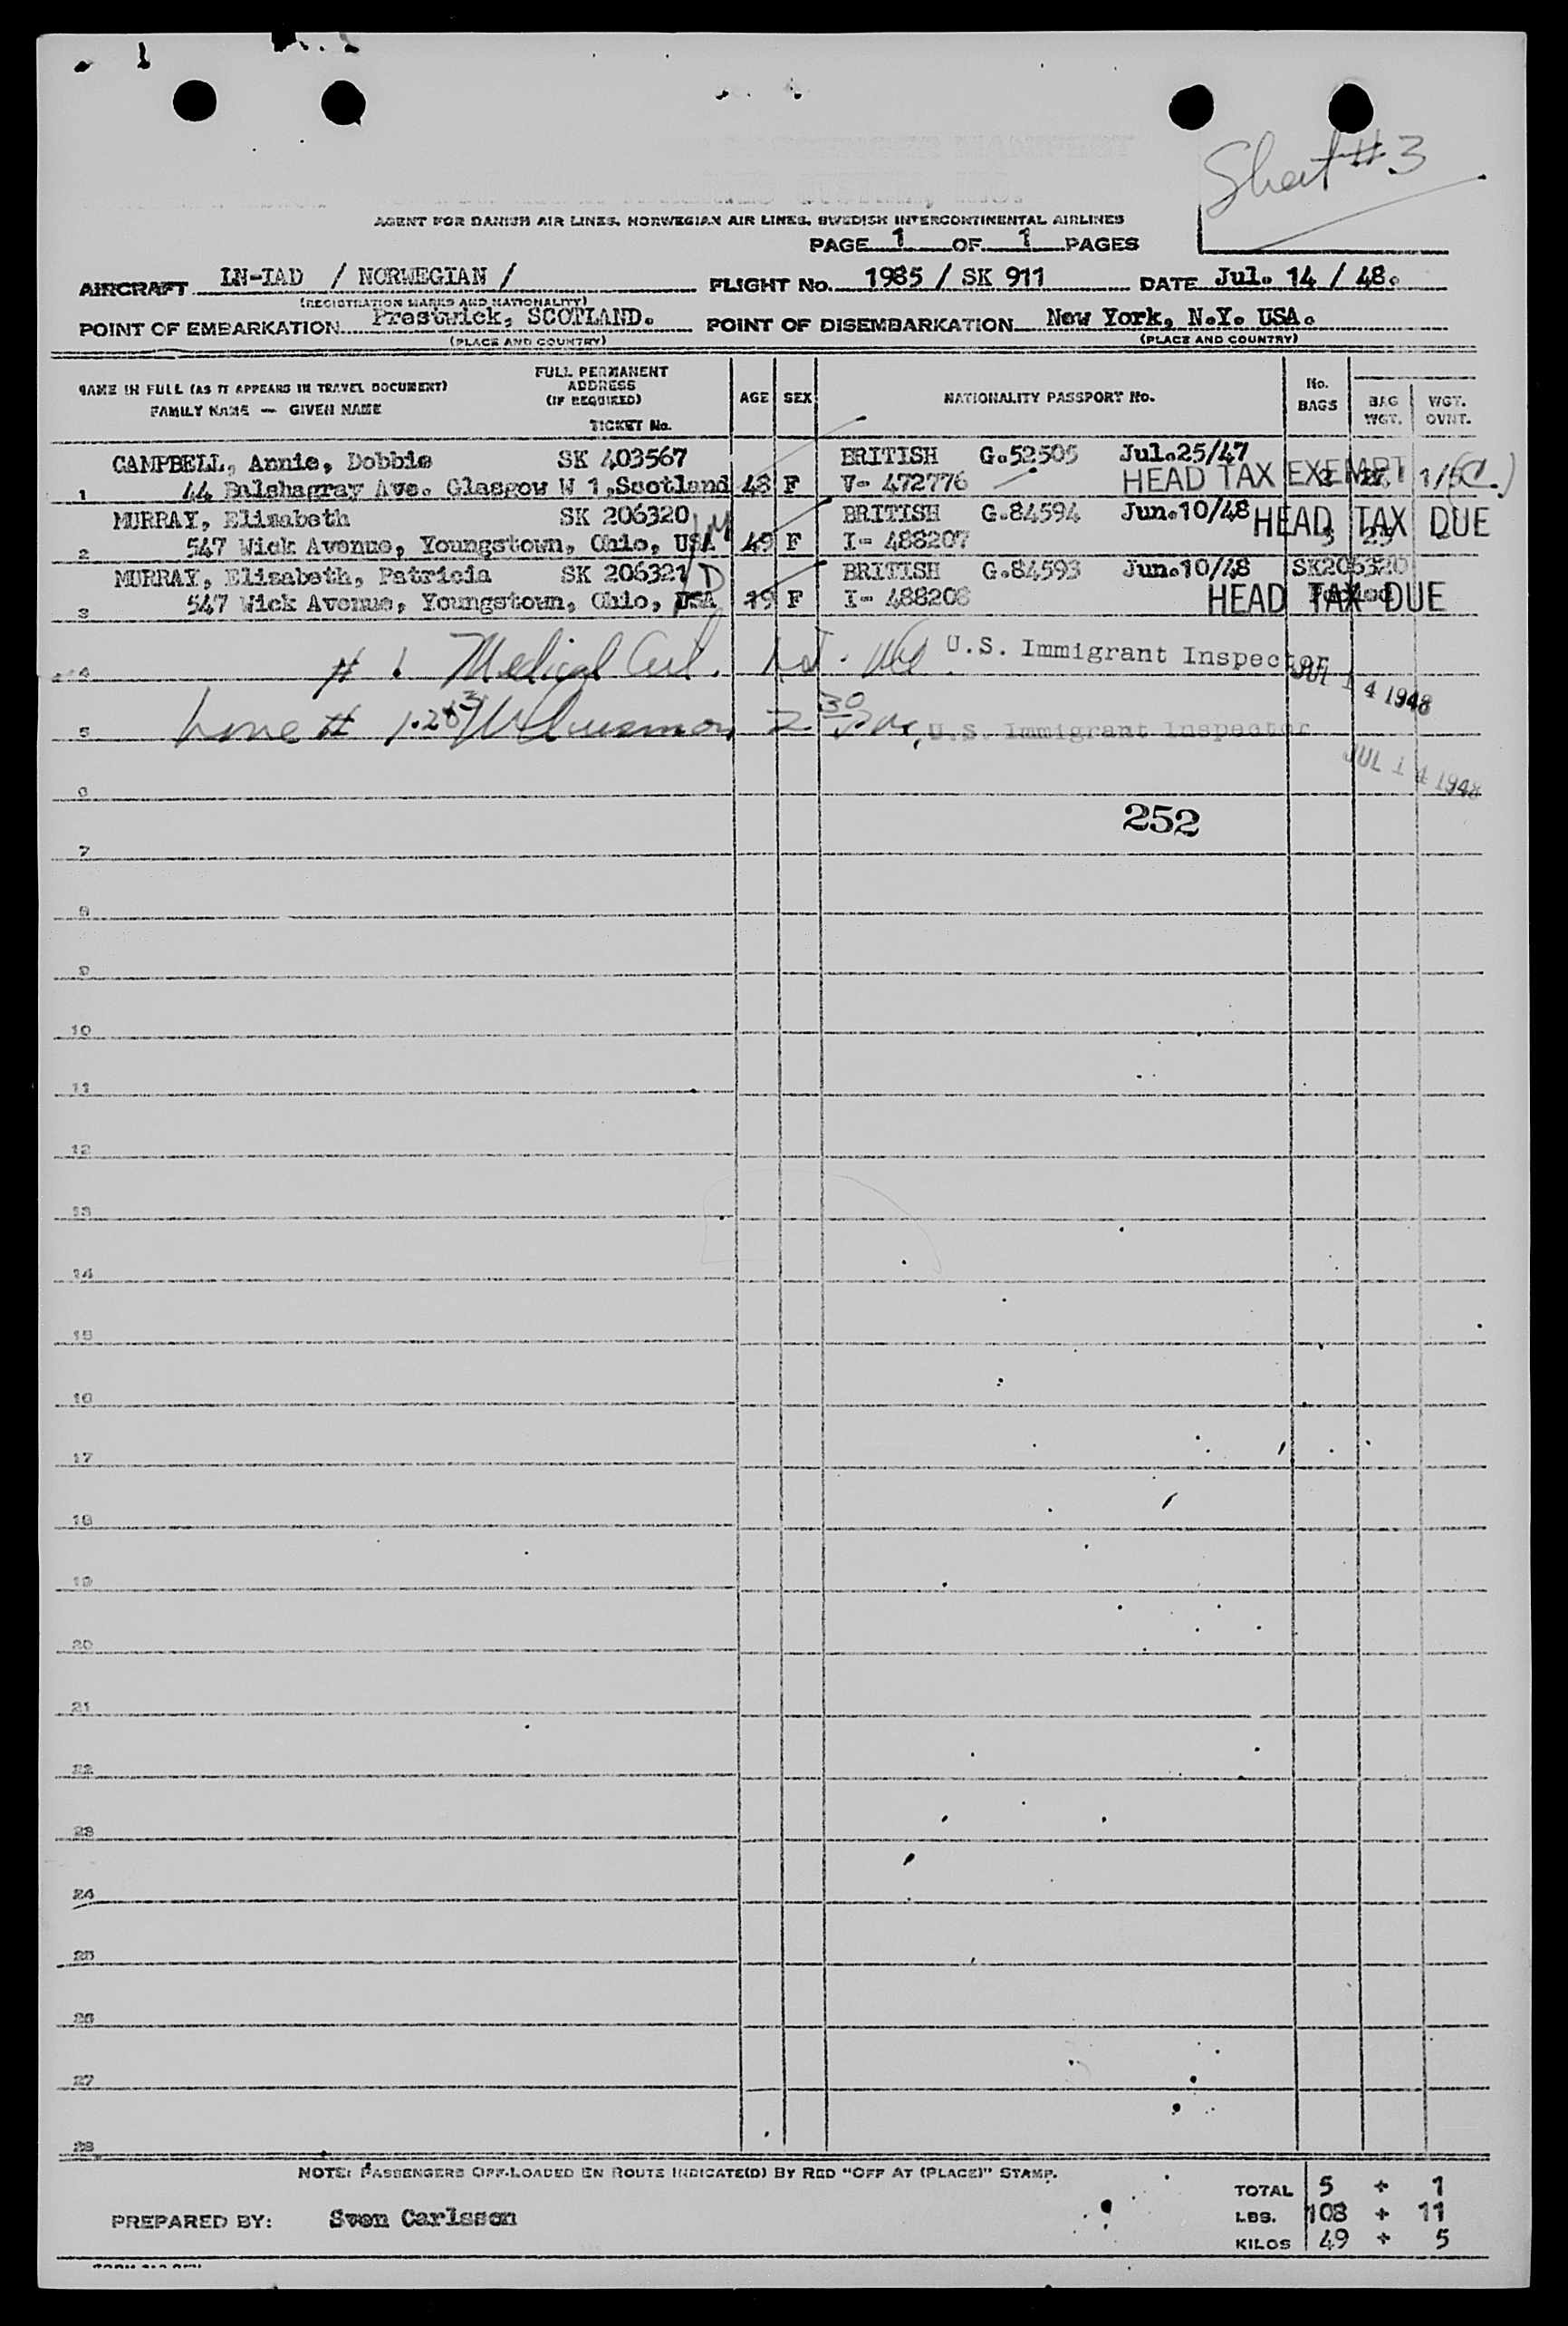 Sheet #3
AGENT FOR DANISH AIR LINES, NORWEGIAN AIR LINES, SWEDISH INTERCONTINENTAL AIRLINES
PAGE 1 OF 1 PAGES
AIRCRAFT LN-IAD / NORWEGIAN / FLIGHT No. 1985 / SK 911 DATE Jul. 14 / 48.
(REGISTRATION MARKS AND NATIONALITY)
POINT OF EMBARKATION Prestwick, SCOTLAND. POINT OF DISEMBARKATION New York, N.Y. USA.
(PLACE AND COUNTRY) (PLACE AND COUNTRY)
NAME IN FULL (AS IT APPEARS IN TRAVEL DOCUMENT) FAMILY NAME — GIVEN NAME
FULL PERMANENT ADDRESS (IF REQUIRED) TICKET No.
AGE SEX NATIONALITY PASSPORT No. No. BAGS BAG WGT. WGT. OVNT.
CAMPBELL, Annie, Dobbie SK 403567 BRITISH G.52505 Jul.25/47
1 44 Balshagray Ave. Glasgow W 1,Scotland 48 F V- 472776 HEAD TAX EXEMPT 2 1/5
MURRAY, Elizabeth SK 206320 BRITISH G.84594 Jun.10/48 HEAD TAX DUE
2 547 Wick Avenue, Youngstown, Ohio, USA M 49 F I- 488207 3
MURRAY, Elizabeth, Patricia SK 206321 BRITISH G.84593 Jun.10/48 SK206320
3 547 Wick Avenue, Youngstown, Ohio, USA D 19 F I- 488208 Pooled HEAD TAX DUE
4 # 1 Medical Cert. U.S. Immigrant Inspector JUL 14 1948
5 Line # 1.2&3 2 30 U.S. Immigrant Inspector
JUL 14 1948
6
252
7
8
9
10
11
12
13
14
15
16
17
18
19
20
21
22
23
24
25
26
27
28
NOTE: PASSENGERS OFF-LOADED EN ROUTE INDICATE(D) BY RED "OFF AT (PLACE)" STAMP.
TOTAL 5 + 1
PREPARED BY: Sven Carlsson LBS. 108 + 11
KILOS 49 + 5